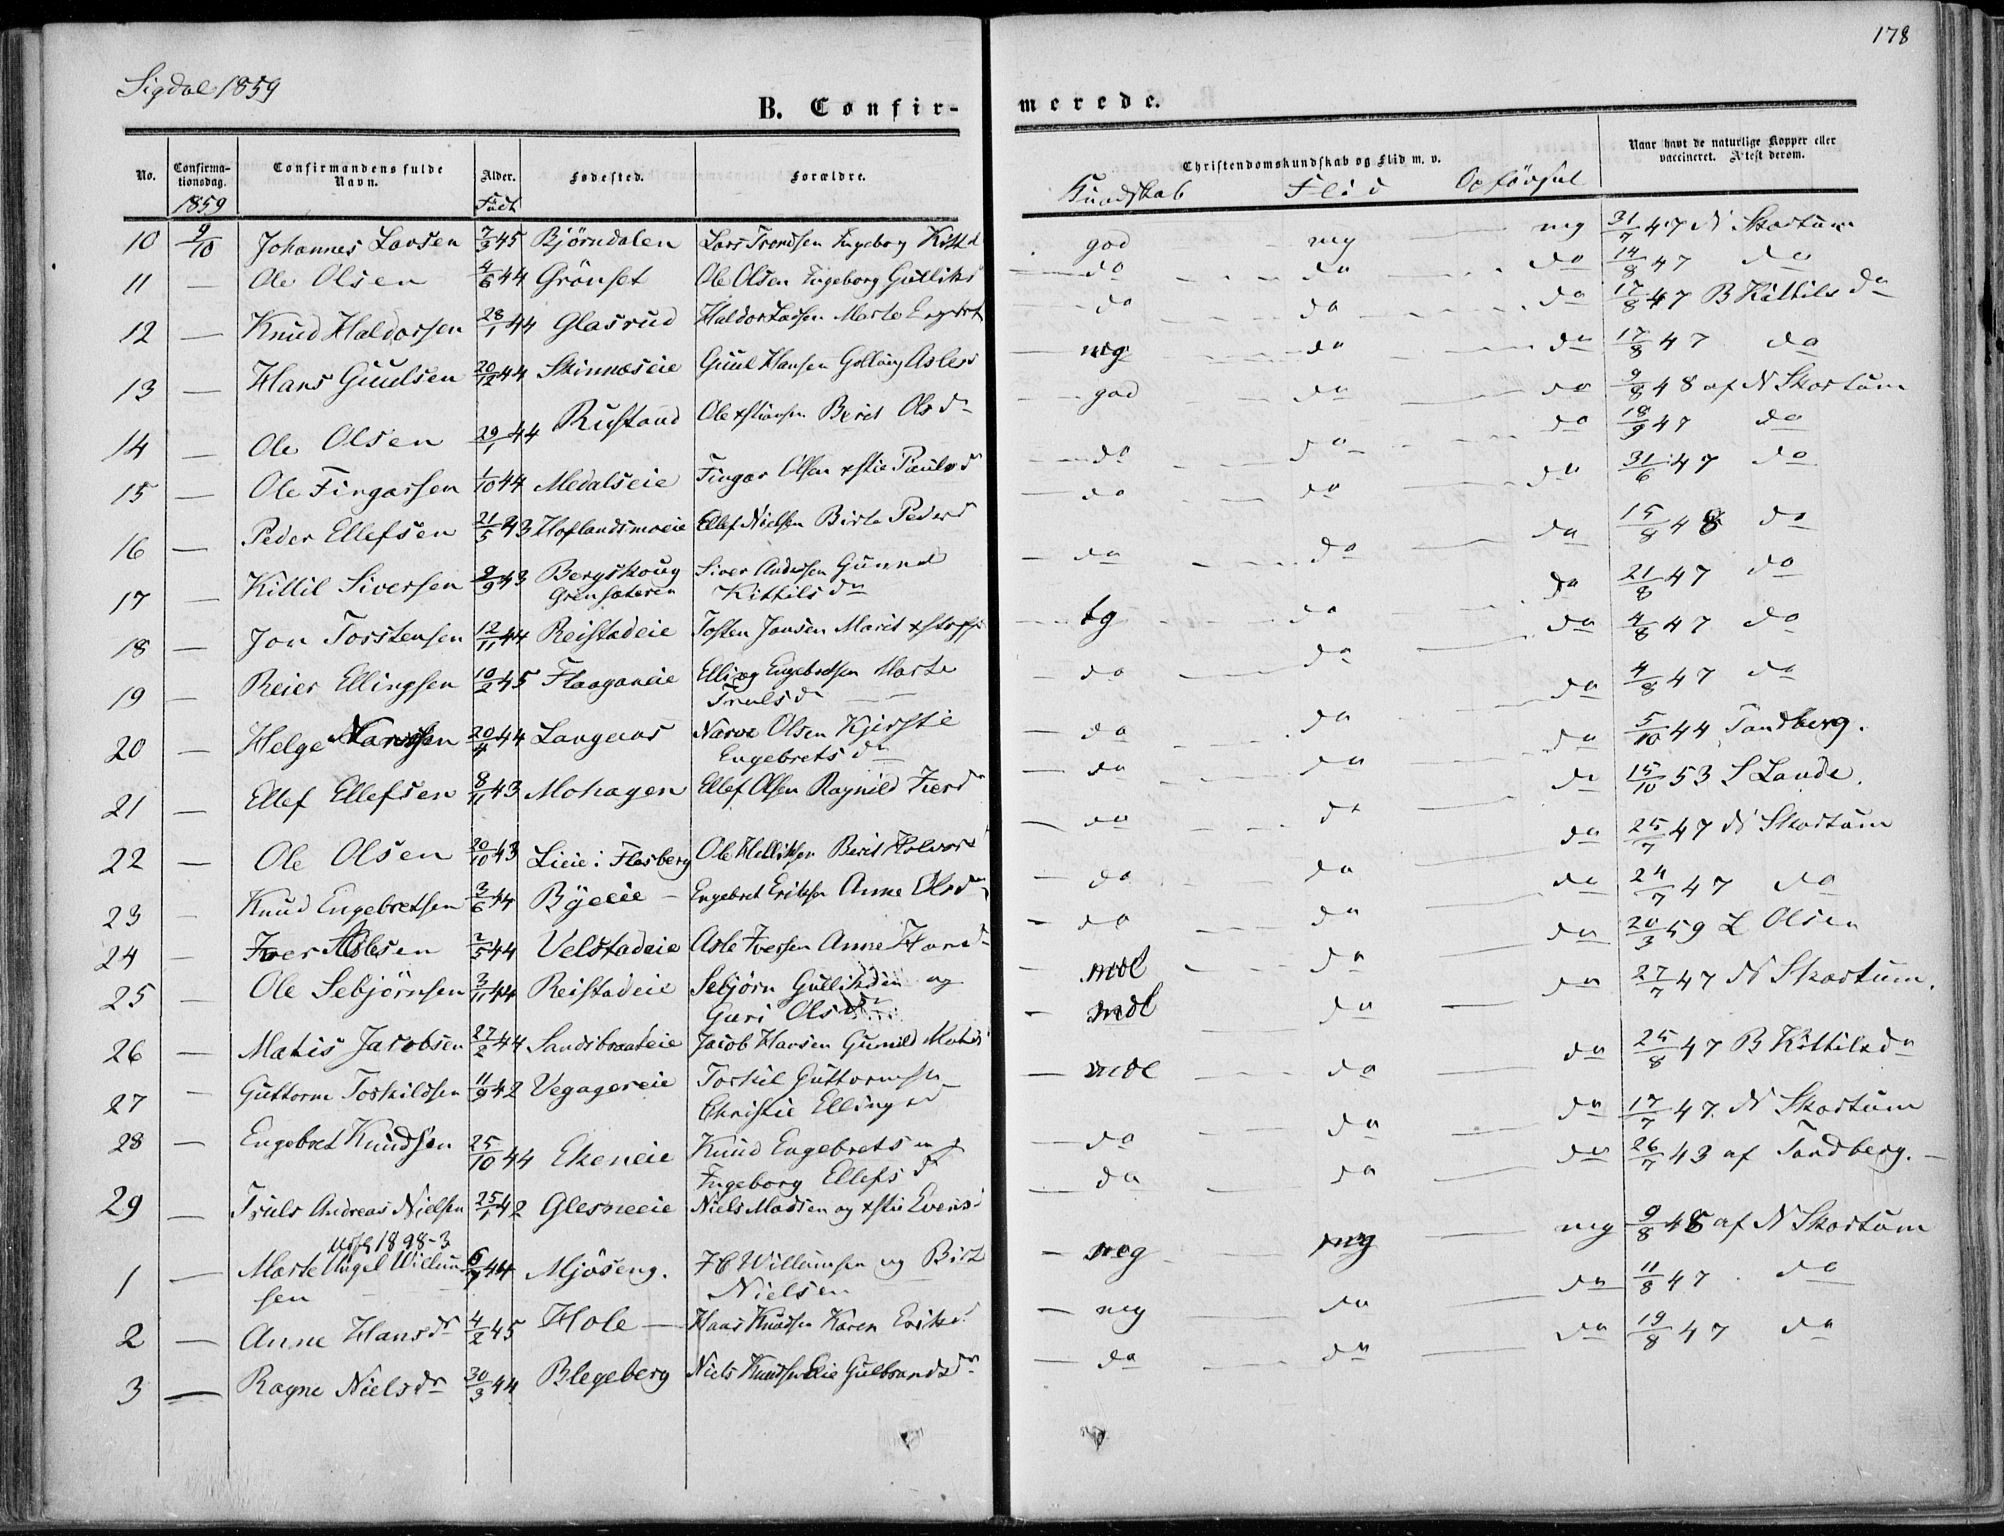 178
Sigdal 1859
B. Confir-
merede.
No.
Confirma-
tionsdag.
1859
Confirmandens fulde
Navn.
Alder.
Födt
Fødested.
Forældre.
Christendomskundskab og Flid m. v.
Kundskab Flid Opförsel
Naar havt de naturlige Kopper eller
vaccineret. Attest derom.
10 9/10 Johannes Larsen 7/3 45 Björndalen Lars Trondsen Ingeborg god mg mg 31/7 47 N Skartum
11 — Ole Olsen 4/6 44 Grönset Ole Olsen Ingeborg Gulliks do do do 14/8 47 do
12 — Knud Haldorsen 28/1 44 Glasrud Haldor Larsen Marte do do do 17/8 47 B Kittilsda
13 — Hans Guulsen 20/12 44 Skinneseie Guul Hansen Asles mg do do 17/8 47 do
14 — Ole Olsen 29/1 44 Rustand Ole Berit Olsd god do do 9/8 48 af N Skartum
15 — Ole Fingarsen 1/10 44 Medalseie Fingar Olsen Paulsd do do do 18/9 47 do
16 — Peder Ellefsen 21/5 43 Hoflandsmoeie Ellef Nielsen Birte Pedersd do do do 31/6 47 do
17 — Kittil Siversen 9/9 43 Bergskoug Siver Andersen Gunnel do do do 15/8 48 do
Grensæteren Kittilsdr
18 — Jon Torstensen 12/11 44 Reistadeie Tosten Jonsen Marit tg do do 21/8 47 do
19 — Reier Ellingsen 10/2 45 Flaaganeie Elling Engebretsen Marte do do do 4/8 47 do
Trulsd
20 — Helge Narvesen 20/4 44 Langeras Narve Olsen Kjerstie do do do 4/8 47 do
Engebretsdr
21 — Ellef Ellefsen 8/11 43 Mohagen Ellef Olsen Ragnild do do do 5/10 44 Tandberg.
22 — Ole Olsen 20/10 43 Lieie i Flesberg Ole Helliksen Berit Halvors do do do 15/10 53 S Lande.
23 — Knud Engebretsen 3/6 44 Byeeie — Engebret Eriksen Anne Olsdr do do do 25/7 47 N Skartum
24 — Iver Aslesen 2/5 44 Velstadeie Asle Iversen Anne do do do 24/7 47 do
25 — Ole Sebjörnsen 3/11 44 Reistadeie Sebjörn og mdl do do 20/3 59 L Olsen
Guri Olsdr
26 — Mathis Jacobsen 27/2 44 Sandsbraateie Jacob Hansen Gunild mdl do do 27/7 47 N Skartum.
27 — Guttorm Torkildsen 11/9 42 Vegagereie Torkil Guttormsen mdl do do 25/8 47 B Kittilsda
Christie Ellingsd
28 — Engebret Knudsen 25/10 44 Ekeneie Knud Engebretsen og do do do 17/7 47. N Skartum
Ingeborg Ellefsd
29 — Truls Andreas Nielsen 25/1 42 Glesneeie Niels Madsen og do do do 26/7 43 af Tandberg.
1898-3
1 — Marte Angel Willum- 6/7 44 Mjöseng. H C Willumsen og mg mg 9/8 48 af N Skartum
sen Nielsen
2 — Anne Hansdr 4/2 45 Hole — Hans Knudsen Karen Eriks mg do do 11/8 47 do
3 — Ragne Nielsdr 30/3 44 Blegeberg Niels Knudsen Gulbrandsdr do do do 19/8 47 do